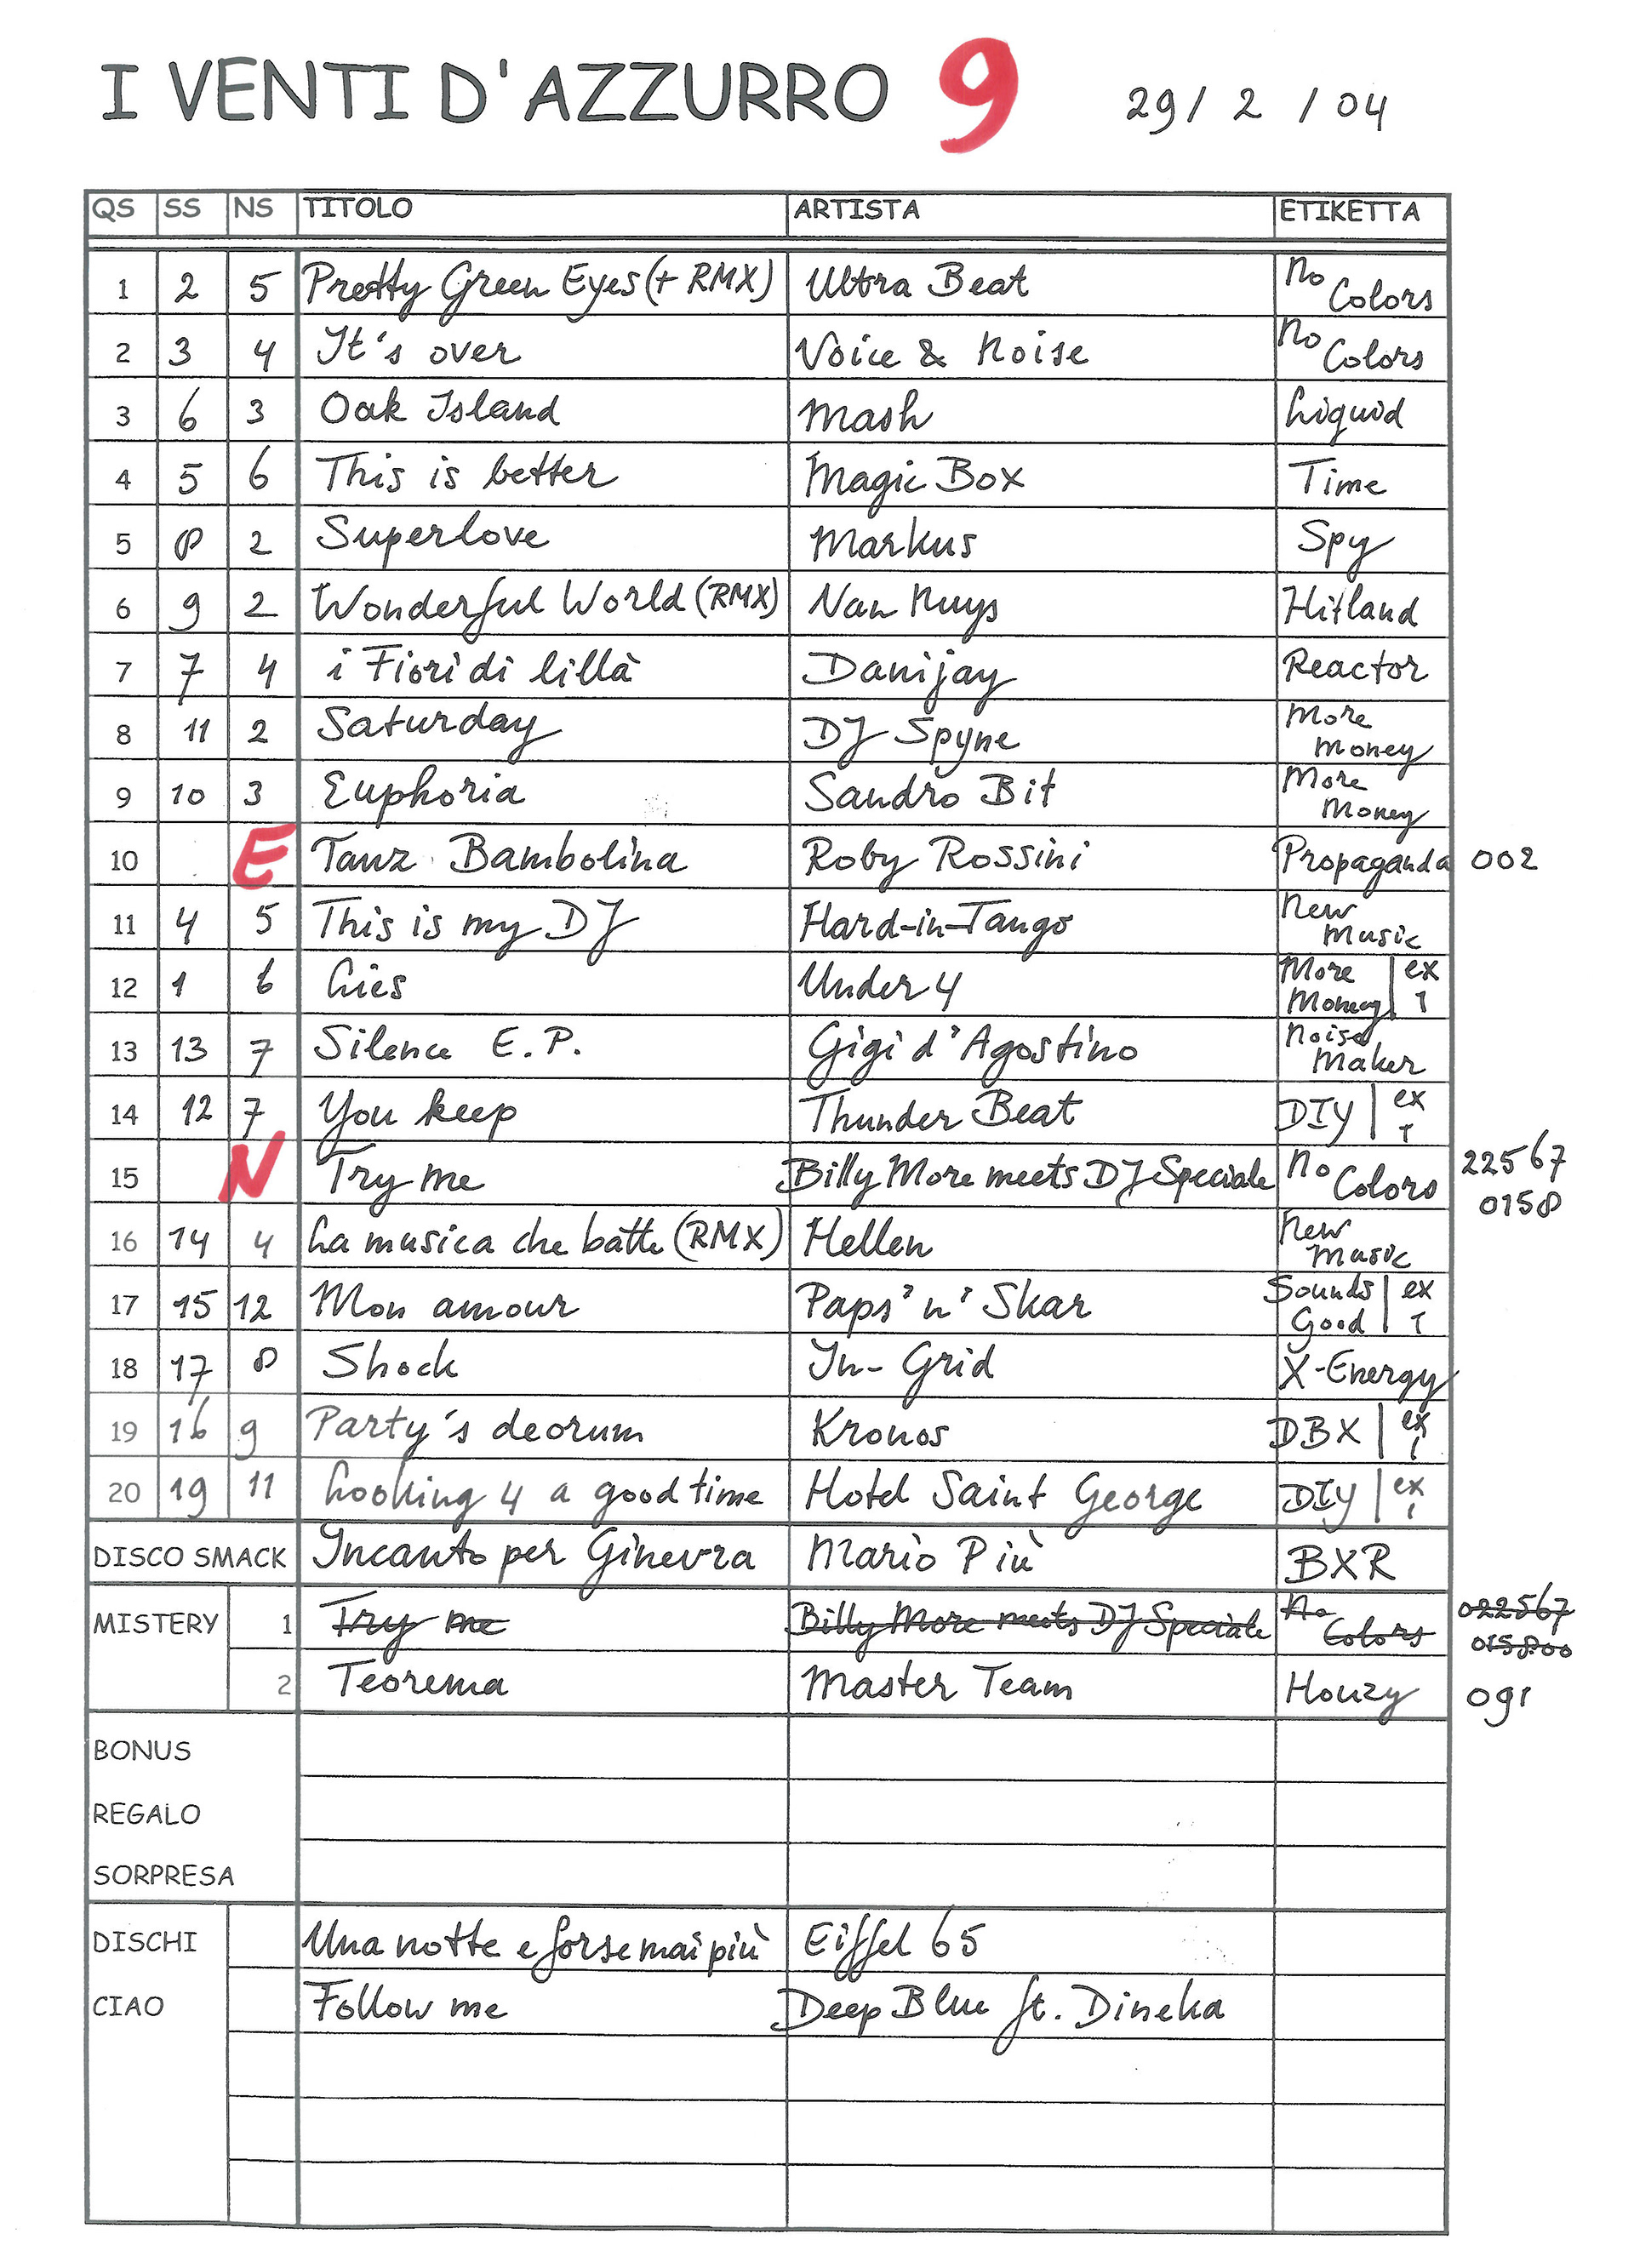 I VENTI D'AZZURRO 9 29/ 2 /04
QS SS NS TITOLO ARTISTA ETIKETTA
1 2 5 Pretty Green Eyes (+ RMX) Ultra Beat No Colors
2 3 4 It's over Voice & Noise No Colors
3 6 3 Oak Island Mash Liquid
4 5 6 This is better Magic Box Time
5 8 2 Superlove Markus Spy
6 9 2 Wonderful World (RMX) Nan Nuys Hitland
7 7 4 i Fiori di lillà Danijay Reactor
8 11 2 Saturday DJ Spyne More Money
9 10 3 Euphoria Sandro Bit More Money
10 E Tanz Bambolina Roby Rossini Propaganda 002
11 4 5 This is my DJ Hard-in-Tango New Music
12 1 6 Lies Under 4 More Money | ex 1
13 13 7 Silence E.P. Gigi d'Agostino Noise Maker
14 12 7 You keep Thunder Beat DIY | ex 1
15 N Try me Billy More meets DJ Speciale No Colors 22567 0158
16 14 4 La musica che batte (RMX) Hellen New Music
17 15 12 Mon amour Paps 'n' Skar Sounds Good | ex 1
18 17 8 Shock In-Grid X-Energy
19 16 9 Party's deorum Kronos DBX | ex 1
20 19 11 Looking 4 a good time Hotel Saint George DIY | ex 1
DISCO SMACK Incanto per Ginevra Mario Più BXR
MISTERY 1 Try me Billy More meets DJ Speciale No Colors 022567 015800
2 Teorema Master Team Houzy 091
BONUS
REGALO
SORPRESA
DISCHI Una notte e forse mai più Eiffel 65
CIAO Follow me Deep Blue ft. Dineka